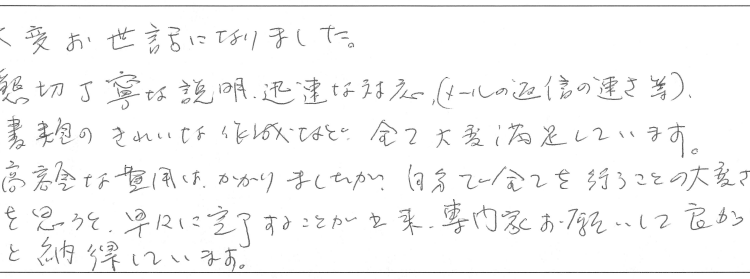 大変お世話になりました。
懇切丁寧な説明、迅速な対応、(メールの返信の速さ等)、
書類のきれいな作成など、全て大変満足しています。
高額な費用は、かかりましたが、自分で全てを行うことの大変さ
を思うと、早くに完了することが出来、専門家にお願いして良かっ
と納得しています。